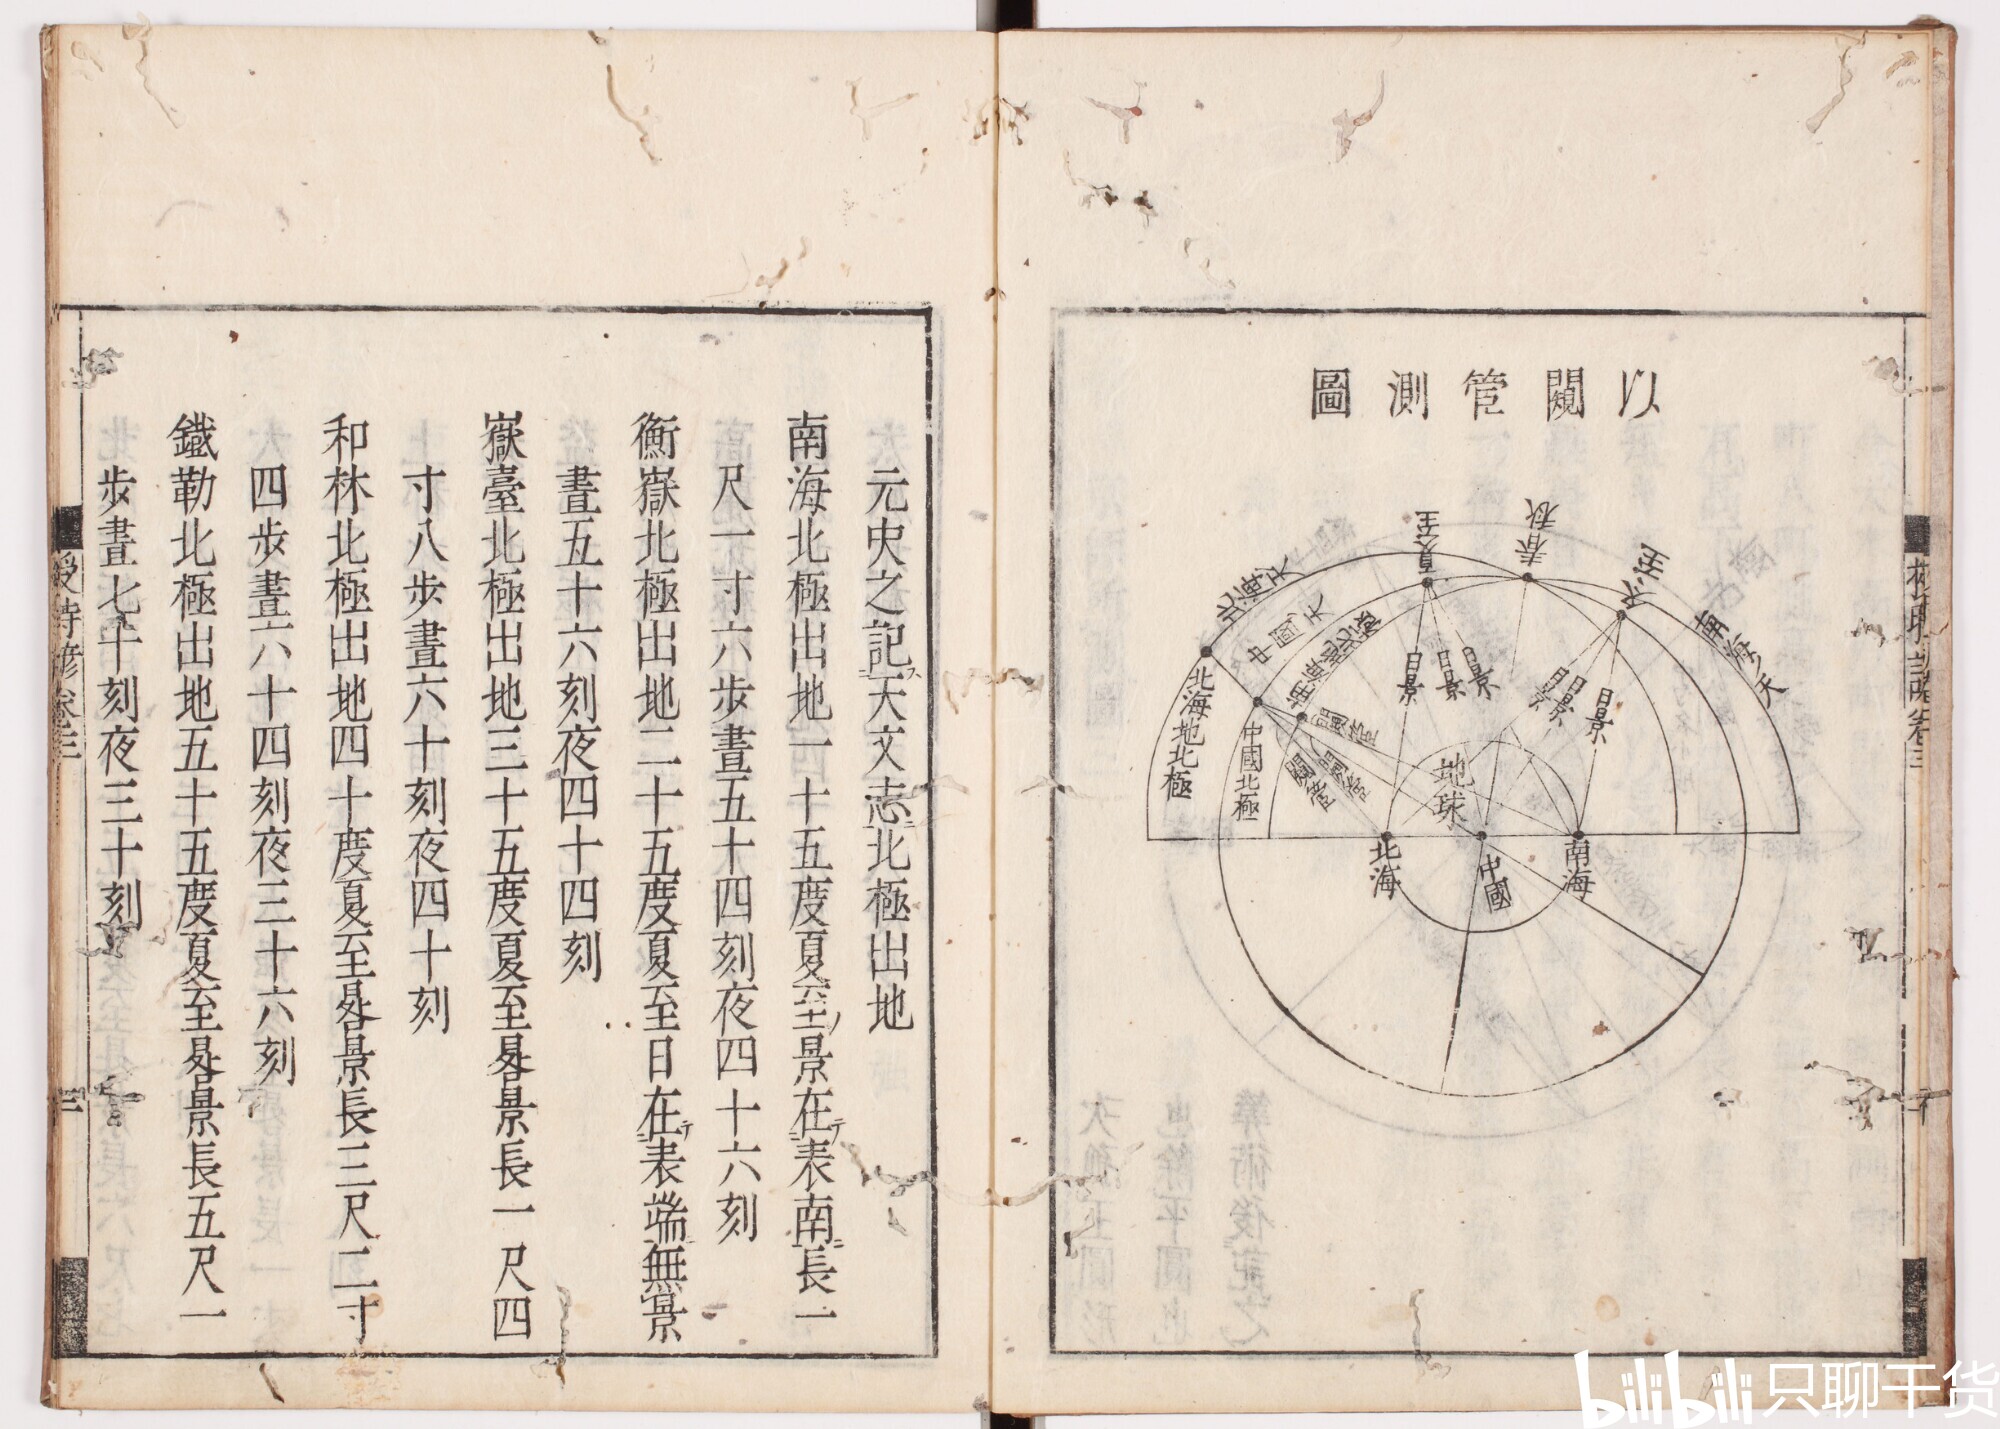 以闚管測圖
北海天
中國天
夏至
春秋
冬至
南海天
北海地北極
中國北極
南海地北極
日景
日景
日景
日景
日景
日景
闚管
闚管
闚管
地球
北海
中國
南海
元史之記ス天文志ニ北極出地
南海北極出地一十五度夏至ノ景在テ表南ニ長一
尺一寸六步晝五十四刻夜四十六刻
衡嶽北極出地二十五度夏至日在テ表端ニ無景
晝五十六刻夜四十四刻
嶽臺北極出地三十五度夏至晷景長一尺四
寸八步晝六十刻夜四十刻
和林北極出地四十度夏至晷景長三尺二寸
四步晝六十四刻夜三十六刻
鐵勒北極出地五十五度夏至晷景長五尺一
步晝七十刻夜三十刻
授時諺卷三
三
bilibili 只聊干货